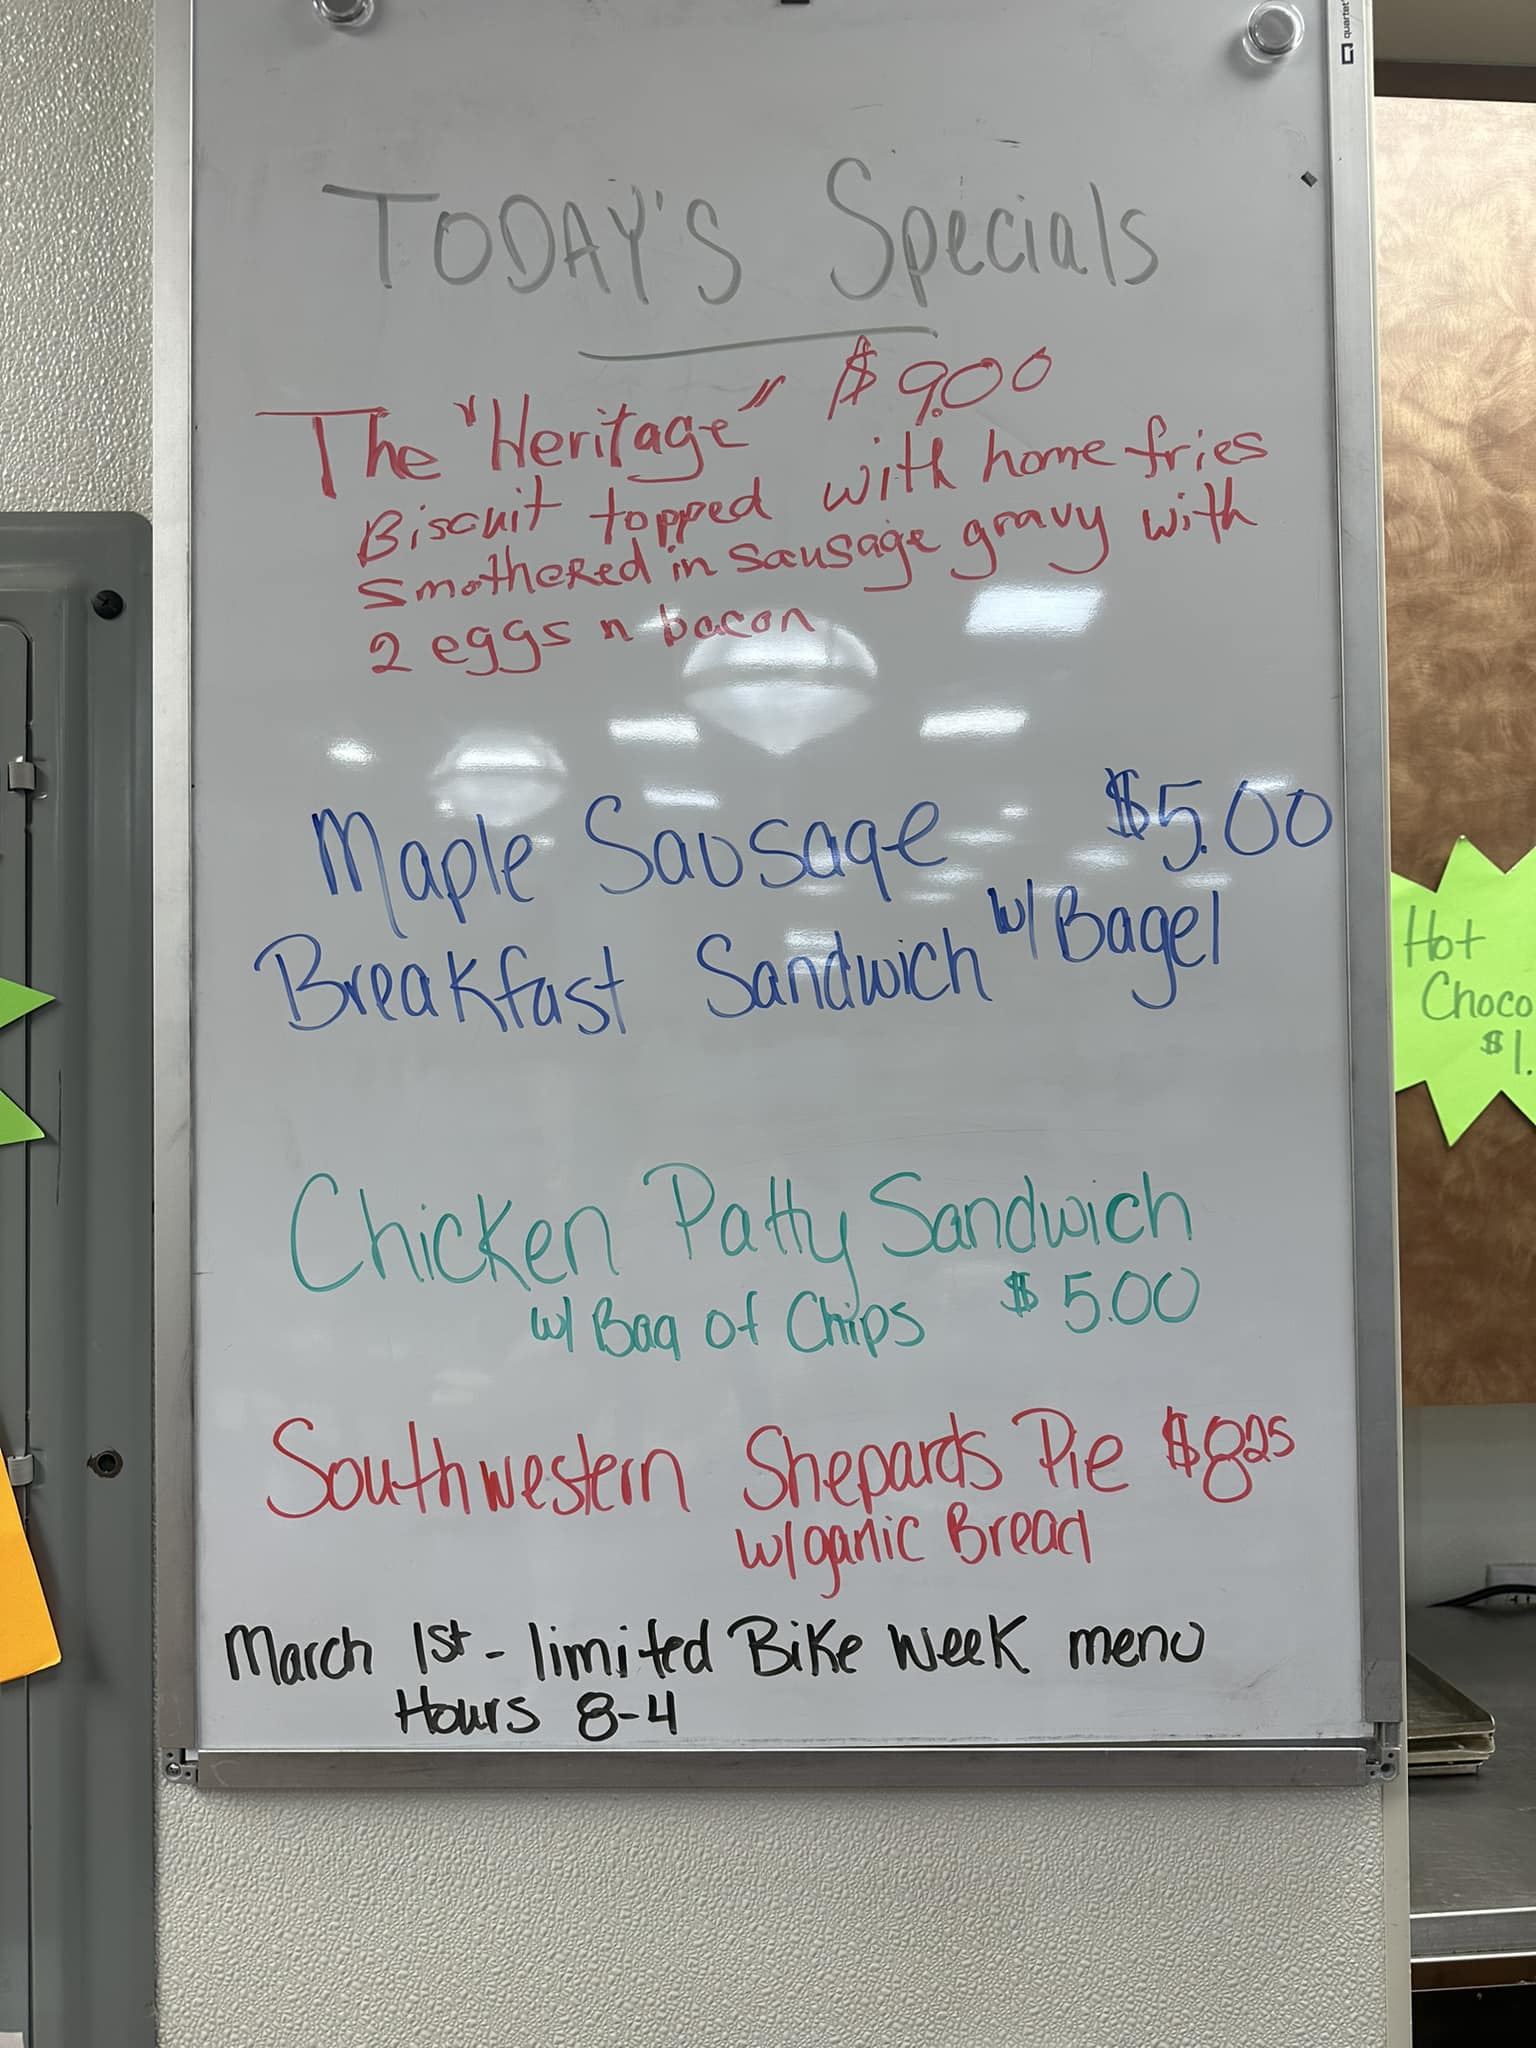 quartet
TODAY'S Specials
The "Heritage" $9.00
Biscuit topped with home fries
smothered in sausage gravy with
2 eggs n bacon
Maple Sausage $5.00
Breakfast Sandwich w/ Bagel
Chicken Patty Sandwich
w/ Bag of Chips $5.00
Southwestern Shepards Pie $8.25
w/garlic Bread
March 1st - limited Bike Week menu
Hours 8-4
Hot
Choco
$1.